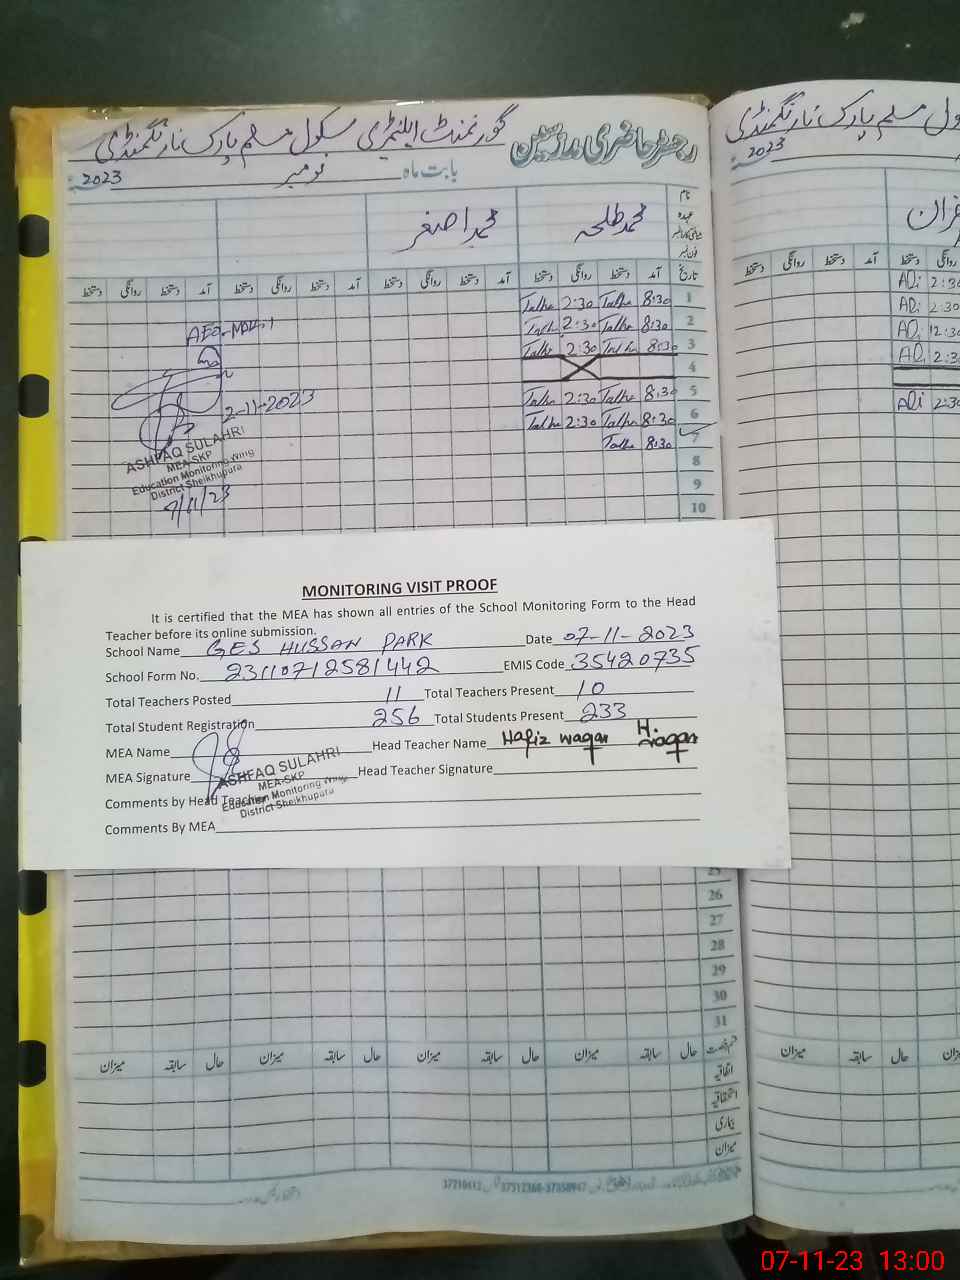 گورنمنٹ ایلیمنٹری سکول مسلم پارک نارنگمنڈی رجسٹر حاضری مدرسین
2023 نومبر بابت ماہ
محمد اصغر محمد طلحہ
نام
عہدہ
فون نمبر
دستخط روانگی دستخط آمد دستخط روانگی دستخط آمد دستخط روانگی دستخط آمد دستخط روانگی دستخط آمد تاریخ
Talha 2:30 Talha 8:30 1
Talha 2:30 Talha 8:30 2
Talha 2:30 Talha 8:30 3
4
Talha 2:30 Talha 8:30 5
Talha 2:30 Talha 8:30 6
Talha 8:30 7
8
9
10
2-11-2023
ASHFAQ SULAHRI
MEA-SKP
Education Monitoring Wing
District Sheikhupura
7/11/23
MONITORING VISIT PROOF
It is certified that the MEA has shown all entries of the School Monitoring Form to the Head
Teacher before its online submission.
School Name GES HUSSAN PARK Date 07-11-2023
School Form No. 23110712581442 EMIS Code 35420735
Total Teachers Posted 11 Total Teachers Present 10
Total Student Registration 256 Total Students Present 233
MEA Name Head Teacher Name Hafiz waqar H. waqar
MEA Signature Head Teacher Signature
ASHFAQ SULAHRI
MEA-SKP
Education Monitoring Wing
District Sheikhupura
Comments by Head Teacher
Comments By MEA
25
26
27
28
29
30
31
میزان سابقہ حال میزان سابقہ حال میزان سابقہ حال میزان سابقہ حال قسم رخصت
اتفاقیہ
استحقاقیہ
بیماری
میزان
سکول مسلم پارک نارنگمنڈی
2023
دستخط روانگی دستخط آمد دستخط
Ali 2:30
Ali 2:30
Ali 12:30
Ali 2:30
Ali 2:30
میزان سابقہ حال
07-11-23 13:00